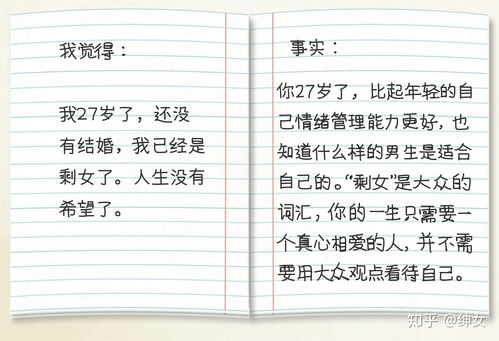 我觉得：
我27岁了，还没
有结婚，我已经是
剩女了。人生没有
希望了。
事实：
你27岁了，比起年轻的自
己情绪管理能力更好，也
知道什么样的男生是适合
自己的。“剩女”是大众的
词汇，你的一生只需要一
个真心相爱的人，并不需
要用大众观点看待自己。
知乎 @绅女